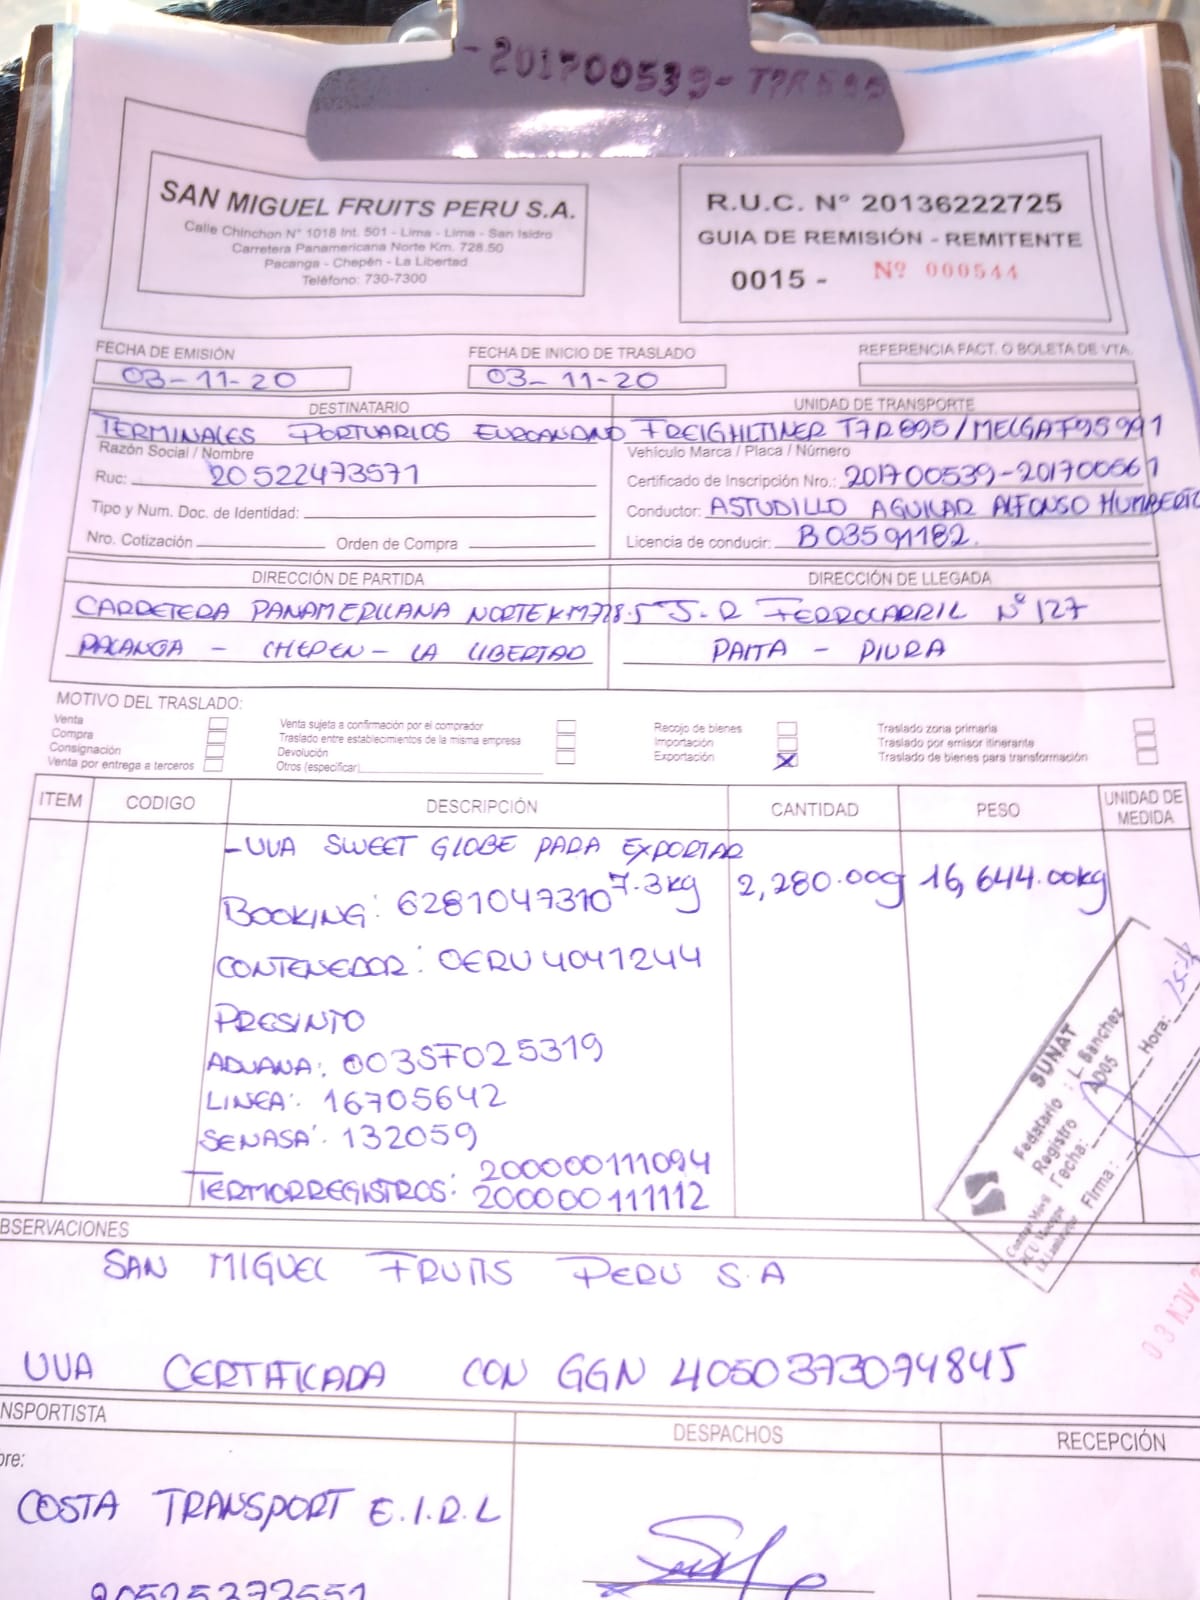 -201700539- T7R895
SAN MIGUEL FRUITS PERU S.A.
Calle Chinchon N° 1018 Int. 501 - Lima - Lima - San Isidro
Carretera Panamericana Norte Km. 728.50
Pacanga - Chepén - La Libertad
Teléfono: 730-7300
R.U.C. N° 20136222725
GUIA DE REMISIÓN - REMITENTE
0015 - Nº 000544
FECHA DE EMISIÓN FECHA DE INICIO DE TRASLADO REFERENCIA FACT. O BOLETA DE VTA.
03-11-20 03-11-20
DESTINATARIO UNIDAD DE TRANSPORTE
TERMINALES PORTUARIOS EUROANDINO FREIGHLTINER T7R895/MELGAF95991
Razón Social / Nombre Vehículo Marca / Placa / Número
Ruc: 20522473571 Certificado de Inscripción Nro.: 201700539-201700561
Tipo y Num. Doc. de Identidad: Conductor: ASTUDILLO AGUILAR ALFONSO HUMBERTO
Nro. Cotización Orden de Compra Licencia de conducir: B03591182.
DIRECCIÓN DE PARTIDA DIRECCIÓN DE LLEGADA
CARRETERA PANAMERICANA NORTE KM728.5 J-R FERROCARRIL Nº 127
PACANGA - CHEPEN - LA LIBERTAD PAITA - PIURA
MOTIVO DEL TRASLADO:
Venta Venta sujeta a confirmación por el comprador Recojo de bienes Traslado zona primaria
Compra Traslado entre establecimientos de la misma empresa Importación Traslado por emisor itinerante
Consignación Devolución Exportación X Traslado de bienes para transformación
Venta por entrega a terceros Otros (especificar)
ITEM CODIGO DESCRIPCIÓN CANTIDAD PESO UNIDAD DE MEDIDA
-UVA SWEET GLOBE PARA EXPORTAR
7.3kg 2,280.00 16,644.00kg
BOOKING: 6281047310
CONTENEDOR: OERU 4041244
PRESINTO
ADUANA: 003SF025319
LINEA: 16705642
SENASA: 132059
TERMORREGISTROS: 200000111094
200000111112
SUNAT
Fedatario : L. Sanchez
Registro AD05
Fecha: Hora:
Firma:
03 NOV
BSERVACIONES
SAN MIGUEL FRUITS PERU S.A
UVA CERTIFICADA CON GGN 4050373074845
NSPORTISTA DESPACHOS RECEPCIÓN
bre:
COSTA TRANSPORT E.I.R.L
20525373551